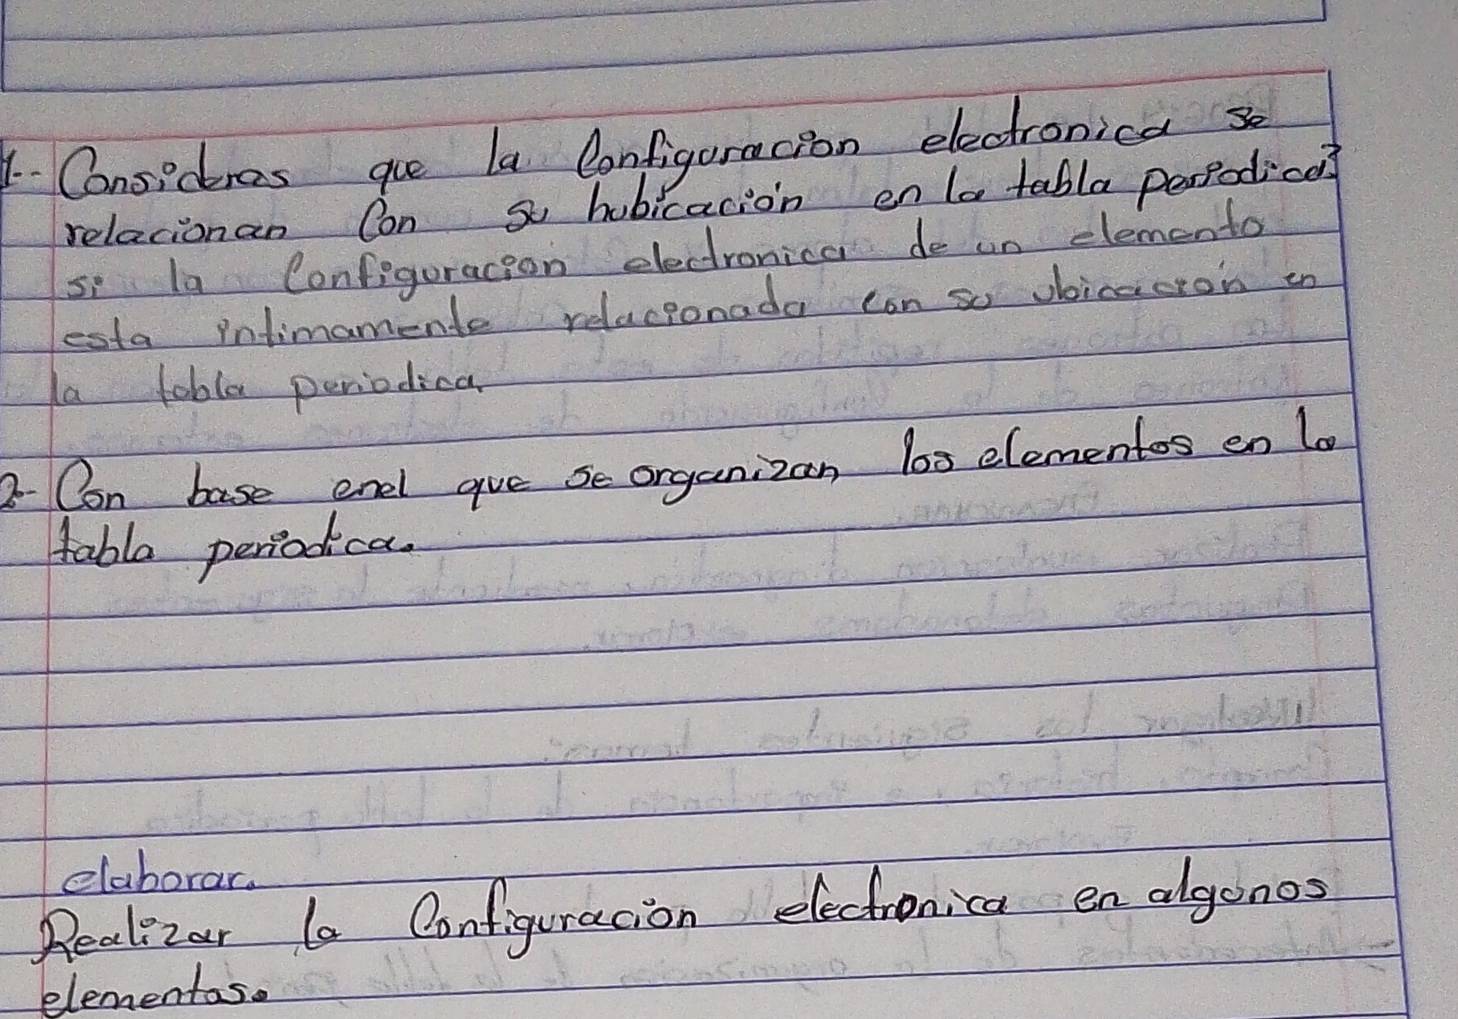 1.- Consideras que la Configuracion electronica se
relacionan Con su hubicación en la tabla periodica?
si la Configuracion electronica de un elemento
esta intimamente relacionada con su ubicación en
la tabla periodica
2- Con base enel que se organizan los elementos en la
tabla periodica.
elaborar.
Realizar la Configuración electronica en algunos
elementos.